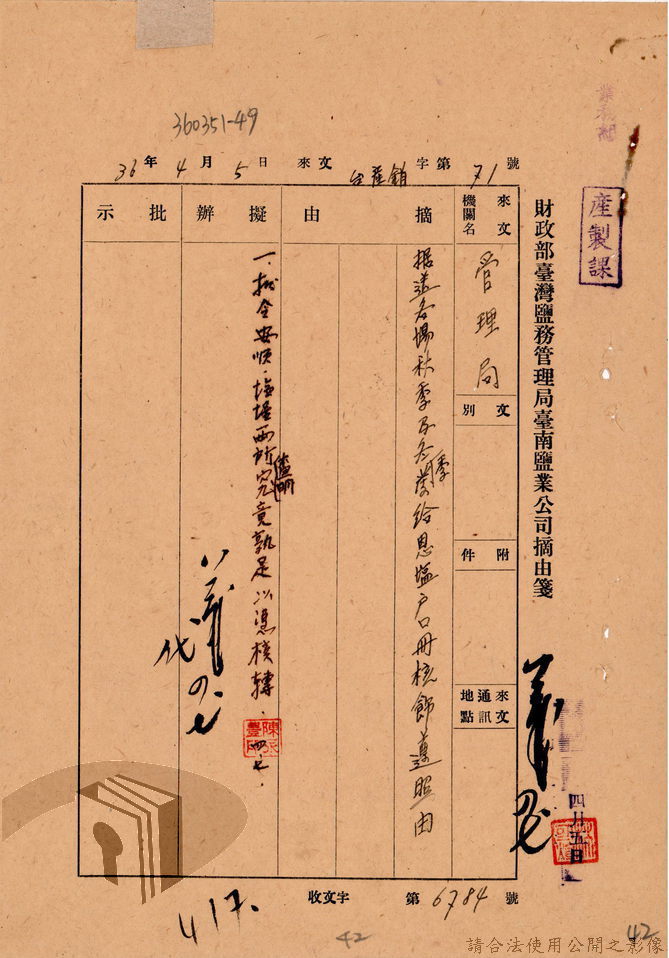 業和組
產製課
財政部臺灣鹽務管理局臺南鹽業公司摘由箋
360351-49
36年4月5日 來文 台產銷字第71號
來文機關名
管理局
文別
附件
來文通訊地點
摘由
据送各場秋季及冬季發給恩塩户口冊核飭遵照由
擬辦
一.批令安順.塩埕兩所查明究竟孰是以憑核轉.
四.七.
批示
代
四月五日
收文字第6784號
417.
42
42
請合法使用公開之影像